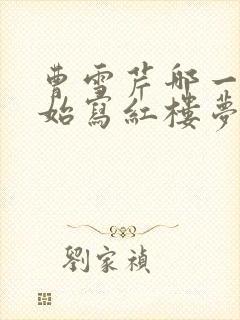 曹雪芹那一
始寫紅樓夢
劉家禎